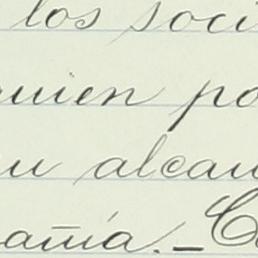 los soci
quien po
su alcan
pañía. - C